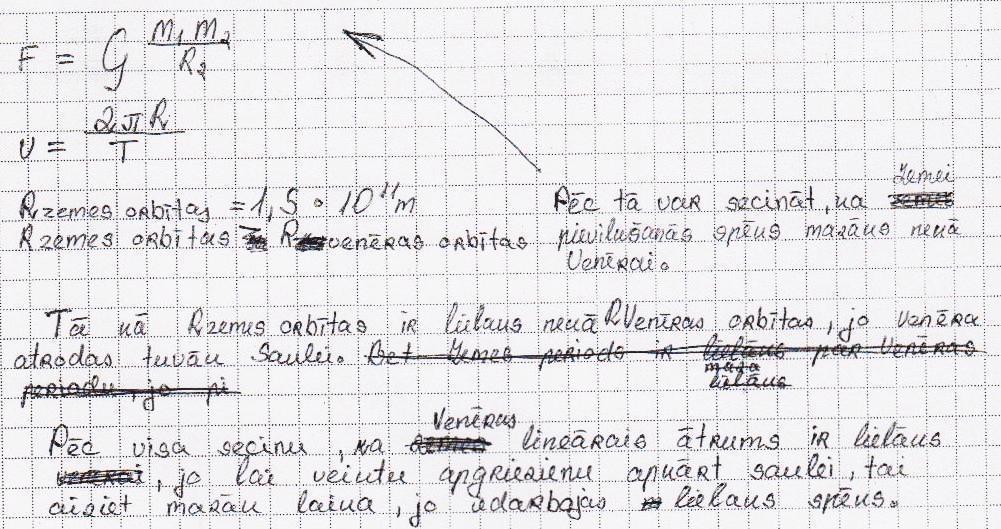 F = G m₁ m₂ / R₂
υ = 2πR / T
Rzemes orbītas = 1,5 · 10¹¹ m
Rzemes orbītas > Rvenēras orbītas
Pēc tā var secināt, ka Zemei
pievilkšanās spēks mazāks nekā
Venērai.
Tā kā Rzemes orbītas ir lielāks nekā RVenēras orbītas, jo venēra
atrodas tuvāk Saulei. Bet Zemes periods ir lielāks par Venēras
masa
lielāks
periodu, jo pi
Pēc visa secinu, ka Venēras lineārais ātrums ir lielāks
, jo lai veiktu apgriezienu apkārt saulei, tai
aiziet mazāk laika, jo iedarbojas lielāks spēks.